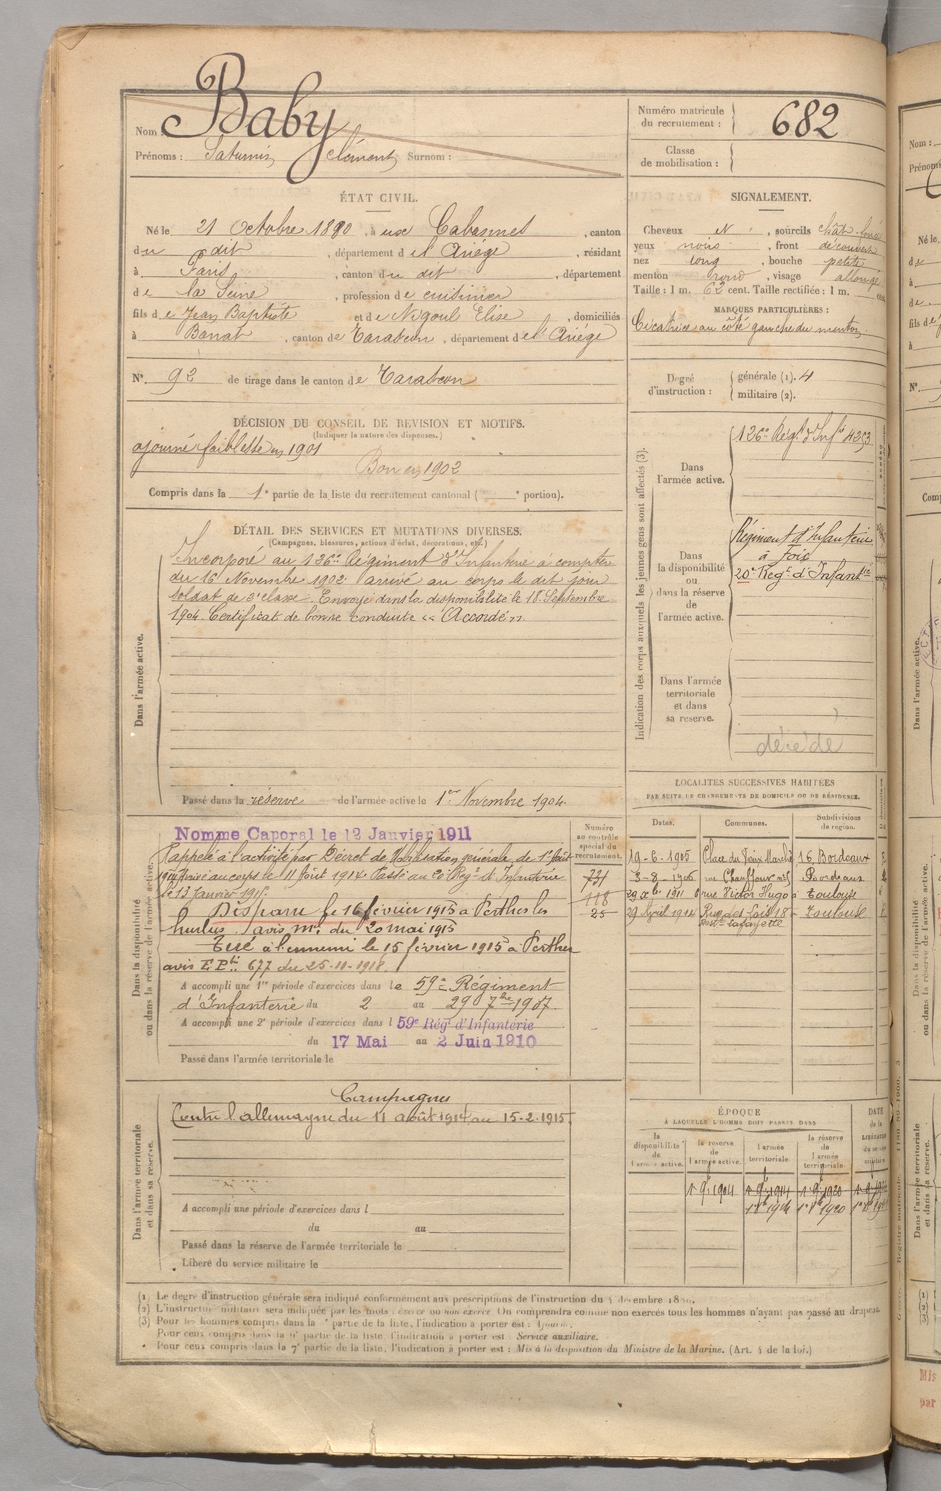 Nom Baby
Prénoms : Saturnin Clément Surnom :
Numéro matricule du recrutement : 682
Classe de mobilisation :
ÉTAT CIVIL.
Né le 21 Octobre 1880, à , canton
du dit, département de l'Ariège, résidant
à Paris, canton du dit, département
de la Seine, profession de cuisinier
fils de Jean Baptiste et de Nigoul Elise, domiciliés
à Banat, canton de Tarascon, département de l'Ariège
N° 92 de tirage dans le canton de Tarascon
SIGNALEMENT.
Cheveux N, sourcils chât.
yeux noirs, front découvert
nez long, bouche petite
menton rond, visage allongé
Taille : 1 m. 62 cent. Taille rectifiée : 1 m. cent.
MARQUES PARTICULIÈRES :
Cicatrice au côté gauche du menton
Degré d'instruction : générale (1). 4
militaire (2).
DÉCISION DU CONSEIL DE REVISION ET MOTIFS.
(Indiquer la nature des dispenses.)
ajourné faiblesse en 1901
Bon en 1902
Compris dans la 1e partie de la liste du recrutement cantonal ( e portion).
DÉTAIL DES SERVICES ET MUTATIONS DIVERSES.
(Campagnes, blessures, actions d'éclat, décorations, etc.)
Dans l'armée active.
Incorporé au 126e Régiment d'Infanterie à compter
du 16 Novembre 1902 arrivé au corps le dit jour
soldat de 2e classe. Envoyé dans la disponibilité le 18 Septembre
1904. Certificat de bonne conduite « Accordé »
Passé dans la réserve de l'armée active le 1er Novembre 1904.
Indication des corps auxquels les jeunes gens sont affectés (3).
Dans l'armée active.
126e Régt d'Infie 4253
Dans la disponibilité ou dans la réserve de l'armée active.
Régiment d'Infanterie
à Foix
20e Regt d'Infanterie
Dans l'armée territoriale et dans sa reserve.
décédé
Dans la disponibilité ou dans la réserve de l'armée active.
Nommé Caporal le 12 Janvier 1911
Rappelé à l'activité par Décret de Mobilisation générale du 1er Août
1914 Arrivé au corps le 11 Août 1914. Passé au 20e Regt d'Infanterie
le 13 Janvier 1915.
Disparu le 16 février 1915 à Perthes les
hurlus avis Ml du 20 mai 1915
Tué à l'ennemi le 15 février 1915 à Perthes
avis 677 du 25-11-1918.
A accompli une 1re période d'exercices dans le 59e Régiment
d'Infanterie du 2 au 29 7bre 1907.
A accompli une 2e période d'exercices dans l 59e Régt d'Infanterie
du 17 Mai au 2 Juin 1910
Passé dans l'armée territoriale le
Numéro au contrôle spécial du recrutement.
731
118
25
LOCALITÉS SUCCESSIVES HABITÉES
PAR SUITE DE CHANGEMENTS DE DOMICILE OU DE RÉSIDENCE.
Dates. Communes. Subdivisions de région.
19-6-1905 Place du Vieux Marché 16 Bordeaux
3-8-1906 rue Bordeaux
1911 rue Victor Hugo Toulouse
29 Avril 1912 Toulouse
Dans l'armée territoriale et dans sa reserve.
Campagnes
Contre l'allemagne du 11 août 1914 au 15-2-1915
A accompli une période d'exercices dans l
du au
Passé dans la réserve de l'armée territoriale le
Libéré du service militaire le
ÉPOQUE
À LAQUELLE L'HOMME DOIT PASSER DANS
la disponibilité de l'armée active.
la réserve de l'armée active.
l'armée territoriale.
la réserve de l'armée territoriale.
DATE de la LIBÉRATION du service militaire
(1) Le degré d'instruction générale sera indiqué conformément aux prescriptions de l'instruction du 4 décembre 1889.
(2) L'instruction militaire sera indiquée par les mots : exercé ou non exercé. On comprendra comme non exercés tous les hommes n'ayant pas passé au drapeau
(3) Pour les hommes compris dans la partie de la liste, l'indication à porter est : Ajourné.
Pour ceux compris dans la partie de la liste, l'indication à porter est : Service auxiliaire.
Pour ceux compris dans la 7e partie de la liste, l'indication à porter est : Mis à la disposition du Ministre de la Marine. (Art. 4 de la loi.)